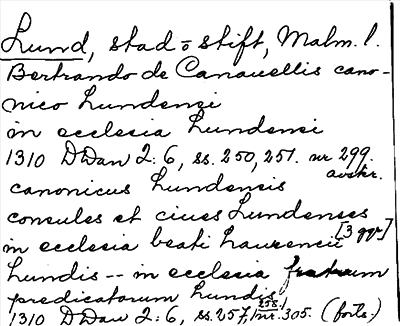 Lund, stad o stift, Malm. l.
Bertrando de Canauellis cano-
nico Lundensi
in ecclesia Lundensi
1310 DDan 2:6, ss. 250, 251. nr 299.
avskr.
canonicus Lundensis
consules et ciues Lundenses
[3 ggr]
in ecclesia beati Laurencii
Lundis -- in ecclesia fratrum
predicatorum Lundis
258.
1310 DDan 2:6, ss. 257, nr. 305. (forts.)